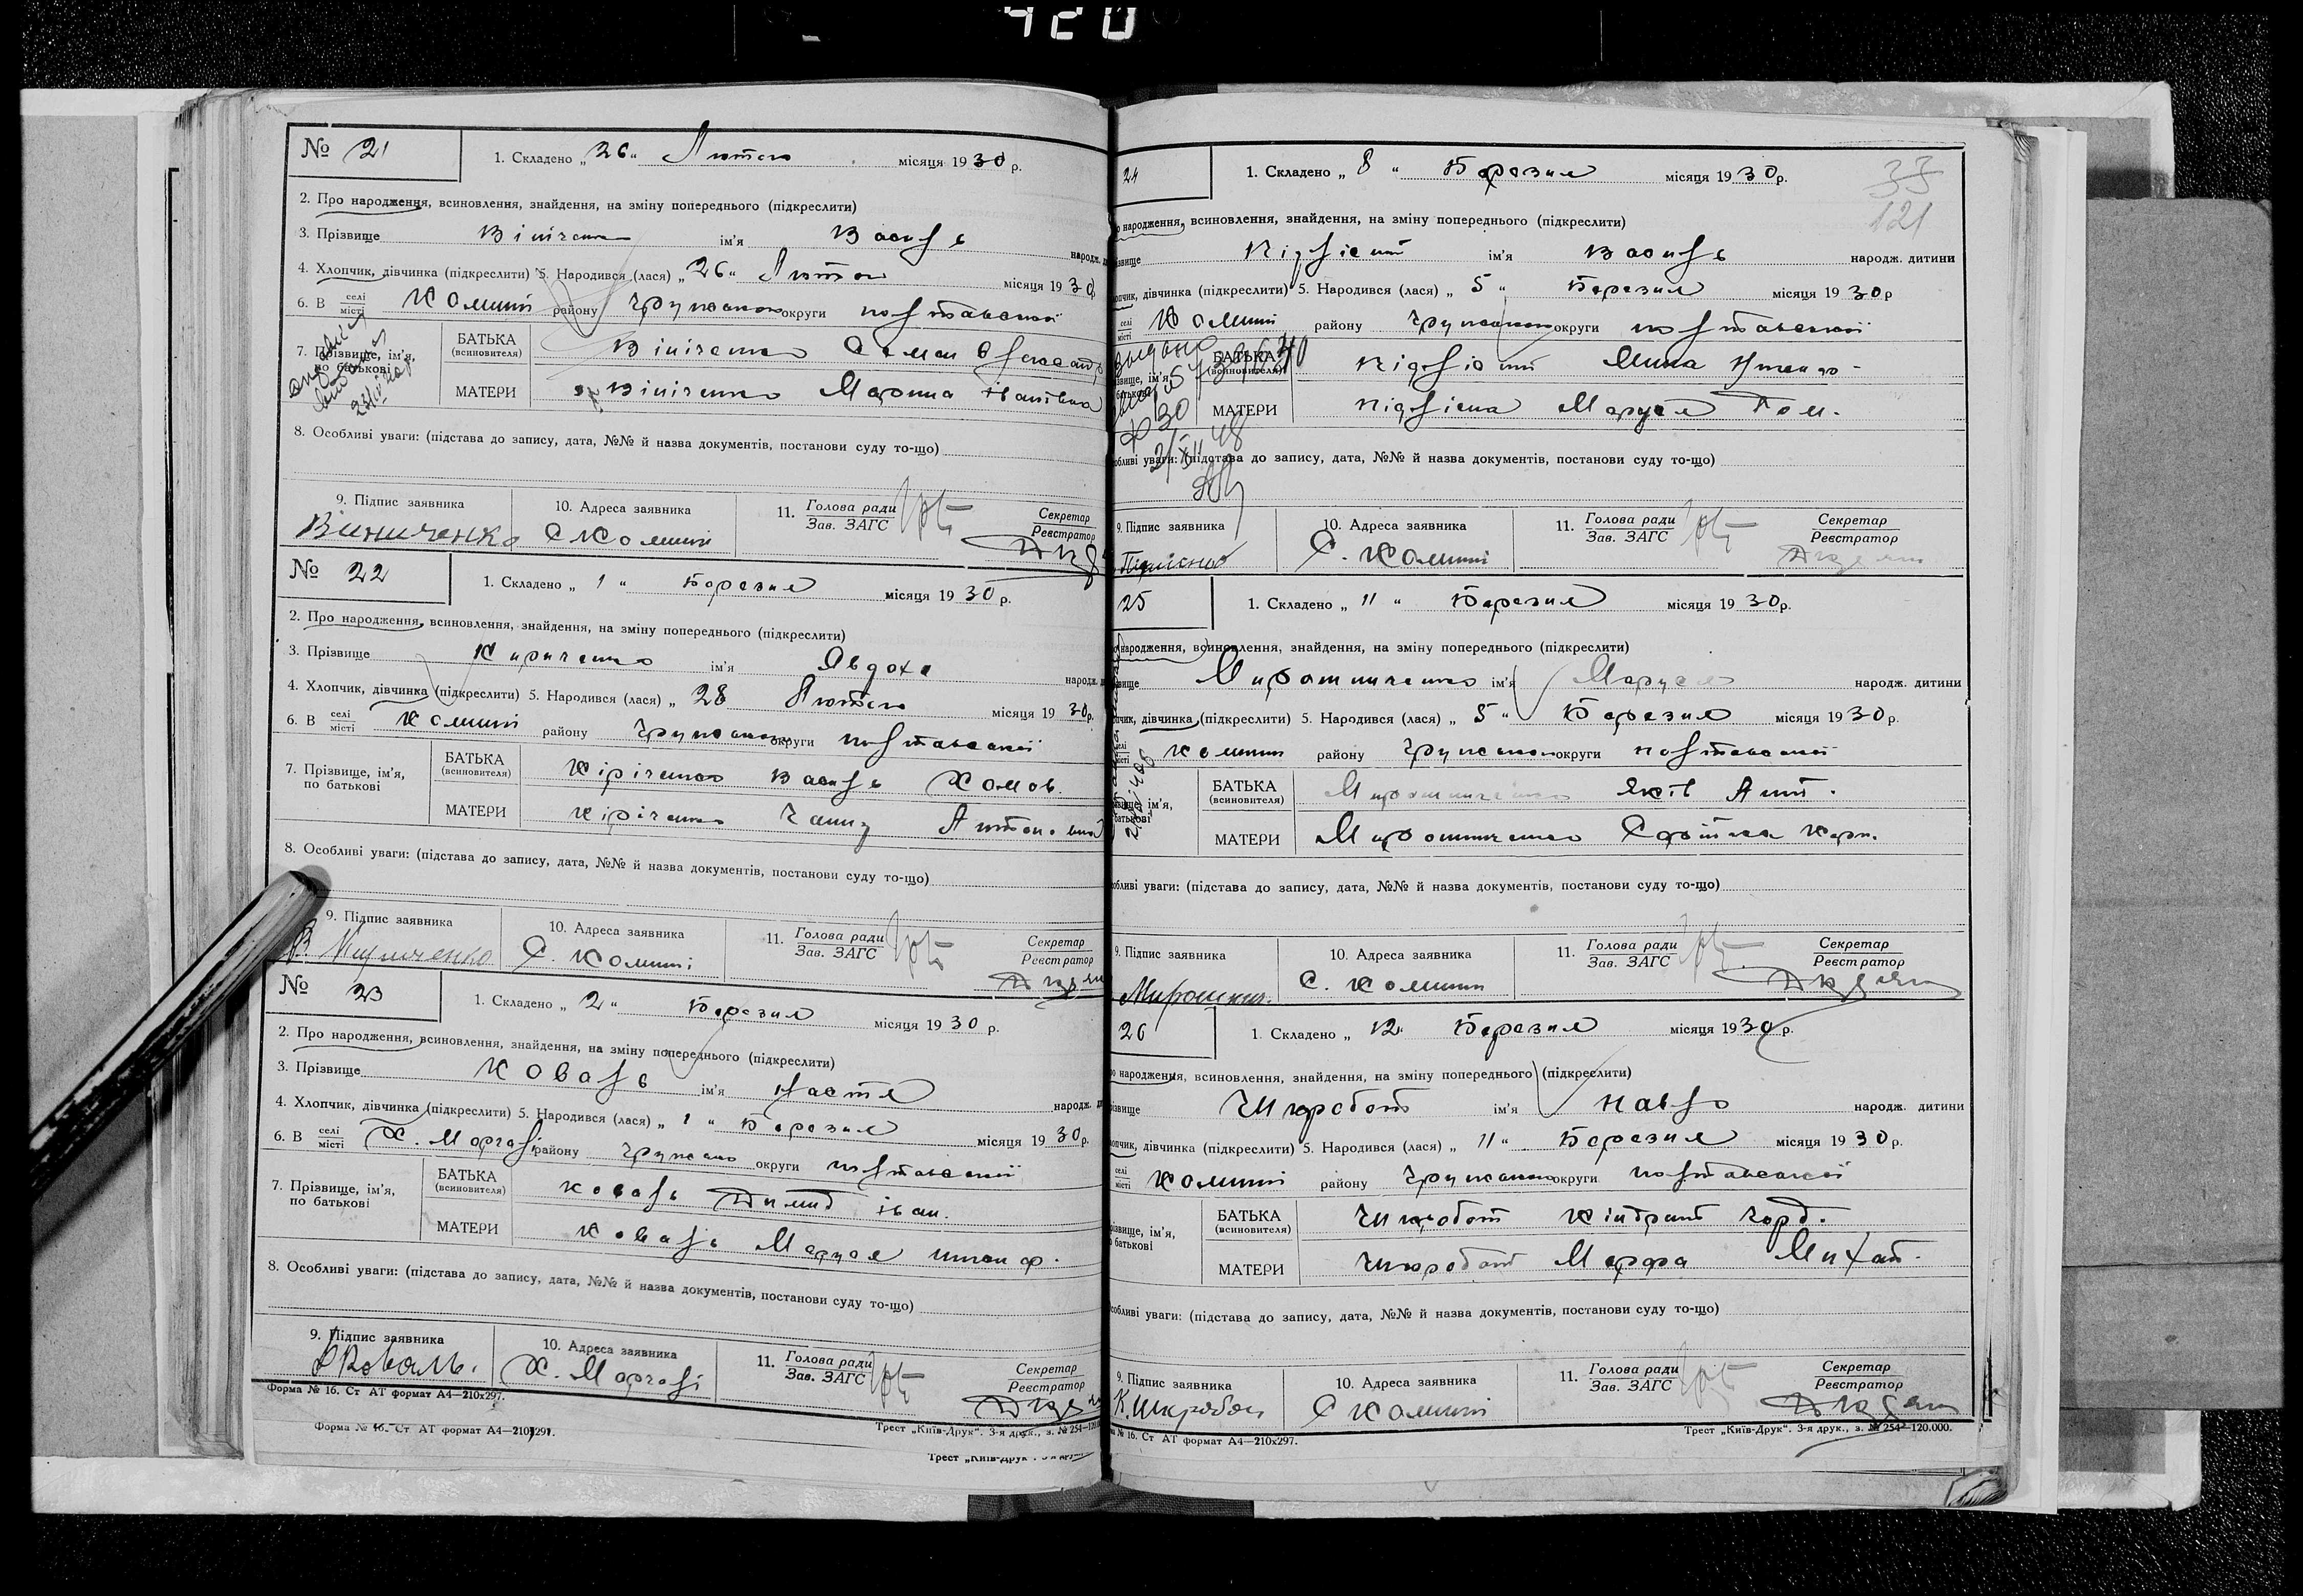 420
№ 21
1. Складено „ 26 “ Лютого місяця 1930 р.
2. Про народження, всиновлення, знайдення, на зміну попереднього (підкреслити)
3. Прізвище Вініченко ім'я Василь народж.
4. Хлопчик, дівчинка (підкреслити) 5. Народився (лася) „ 26 “ Лютого місяця 1930
6. В селі місті Комиші району Грунського округи полтавської
7. Прізвище, ім'я, по батькові
БАТЬКА (всиновителя) Вініченко Семен Олександр
МАТЕРИ Вініченко Мариша Іванівна
8. Особливі уваги: (підстава до запису, дата, №№ й назва документів, постанови суду то-що)
9. Підпис заявника Виниченко
10. Адреса заявника С Комиші
11. Голова ради Зав. ЗАГС
Секретар Реєстратор
№ 22
1. Складено „ 1 “ Березня місяця 1930 р.
2. Про народження, всиновлення, знайдення, на зміну попереднього (підкреслити)
3. Прізвище Кириченко ім'я Явдоха народж.
4. Хлопчик, дівчинка (підкреслити) 5. Народився (лася) „ 28 Лютого місяця 1930р.
6. В селі місті Комиші району Грунського округи полтавської
7. Прізвище, ім'я, по батькові
БАТЬКА (всиновителя) Кіріченко Василь Хомов.
МАТЕРИ Кіріченко Антоновна
8. Особливі уваги: (підстава до запису, дата, №№ й назва документів, постанови суду то-що)
9. Підпис заявника
10. Адреса заявника С. Комиші
11. Голова ради Зав. ЗАГС
Секретар Реєстратор
№ 23
1. Складено „ 2 “ Березня місяця 1930 р.
2. Про народження, всиновлення, знайдення, на зміну попереднього (підкреслити)
3. Прізвище Коваль ім'я Настя народж.
4. Хлопчик, дівчинка (підкреслити) 5. Народився (лася) „ 1 “ Березня місяця 1930р.
6. В селі місті Х. району Грунсько округи полтавської
7. Прізвище, ім'я, по батькові
БАТЬКА (всиновителя) Коваль Іван.
МАТЕРИ Коваль Маруся
8. Особливі уваги: (підстава до запису, дата, №№ й назва документів, постанови суду то-що)
9. Підпис заявника Коваль.
10. Адреса заявника Х.
11. Голова ради Зав. ЗАГС
Секретар Реєстратор
Форма № 16. Ст АТ формат А4—210х297.
Форма № 16. Ст АТ формат А4—210х297.
Трест „Київ-Друк“. 3-я друк., з. № 254—120
24
1. Складено „ 8 “ Березня місяця 1930р.
33
121
народження, всиновлення, знайдення, на зміну попереднього (підкреслити)
Підлісний ім'я Василь народж. дитини
дівчинка (підкреслити) 5. Народився (лася) „ 5 “ Березня місяця 1930р
селі місті Комиші району Грунського округи полтавської
БАТЬКА (всиновителя) Підлісний
МАТЕРИ Підлісна Маруся
уваги: (підстава до запису, дата, №№ й назва документів, постанови суду то-що)
9. Підпис заявника
10. Адреса заявника С. Комиші
11. Голова ради Зав. ЗАГС
Секретар Реєстратор
25
1. Складено „ 11 “ Березня місяця 1930р.
народження, всиновлення, знайдення, на зміну попереднього (підкреслити)
Мирошниченко ім'я Маруся народж. дитини
дівчинка (підкреслити) 5. Народився (лася) „ 5 “ Березня місяця 1930р.
селі місті Комиші району Грунського округи полтавської
БАТЬКА (всиновителя) Мирошниченко Яків Ант.
МАТЕРИ Мирошниченко Карп.
уваги: (підстава до запису, дата, №№ й назва документів, постанови суду то-що)
9. Підпис заявника Мирошнич.
10. Адреса заявника С. Комиші
11. Голова ради Зав. ЗАГС
Секретар Реєстратор
26
1. Складено „ 12 “ Березня місяця 1930р.
народження, всиновлення, знайдення, на зміну попереднього (підкреслити)
Чикробот ім'я Павло народж. дитини
дівчинка (підкреслити) 5. Народився (лася) „ 11 “ Березня місяця 1930р.
селі місті Комиші району Грунського округи полтавської
БАТЬКА (всиновителя) Кіндрат
МАТЕРИ Марфа Михай.
уваги: (підстава до запису, дата, №№ й назва документів, постанови суду то-що)
9. Підпис заявника
10. Адреса заявника С Комиші
11. Голова ради Зав. ЗАГС
Секретар Реєстратор
№ 16. Ст АТ формат А4—210х297.
Трест „Київ-Друк“. 3-я друк., з. № 254—120.000.